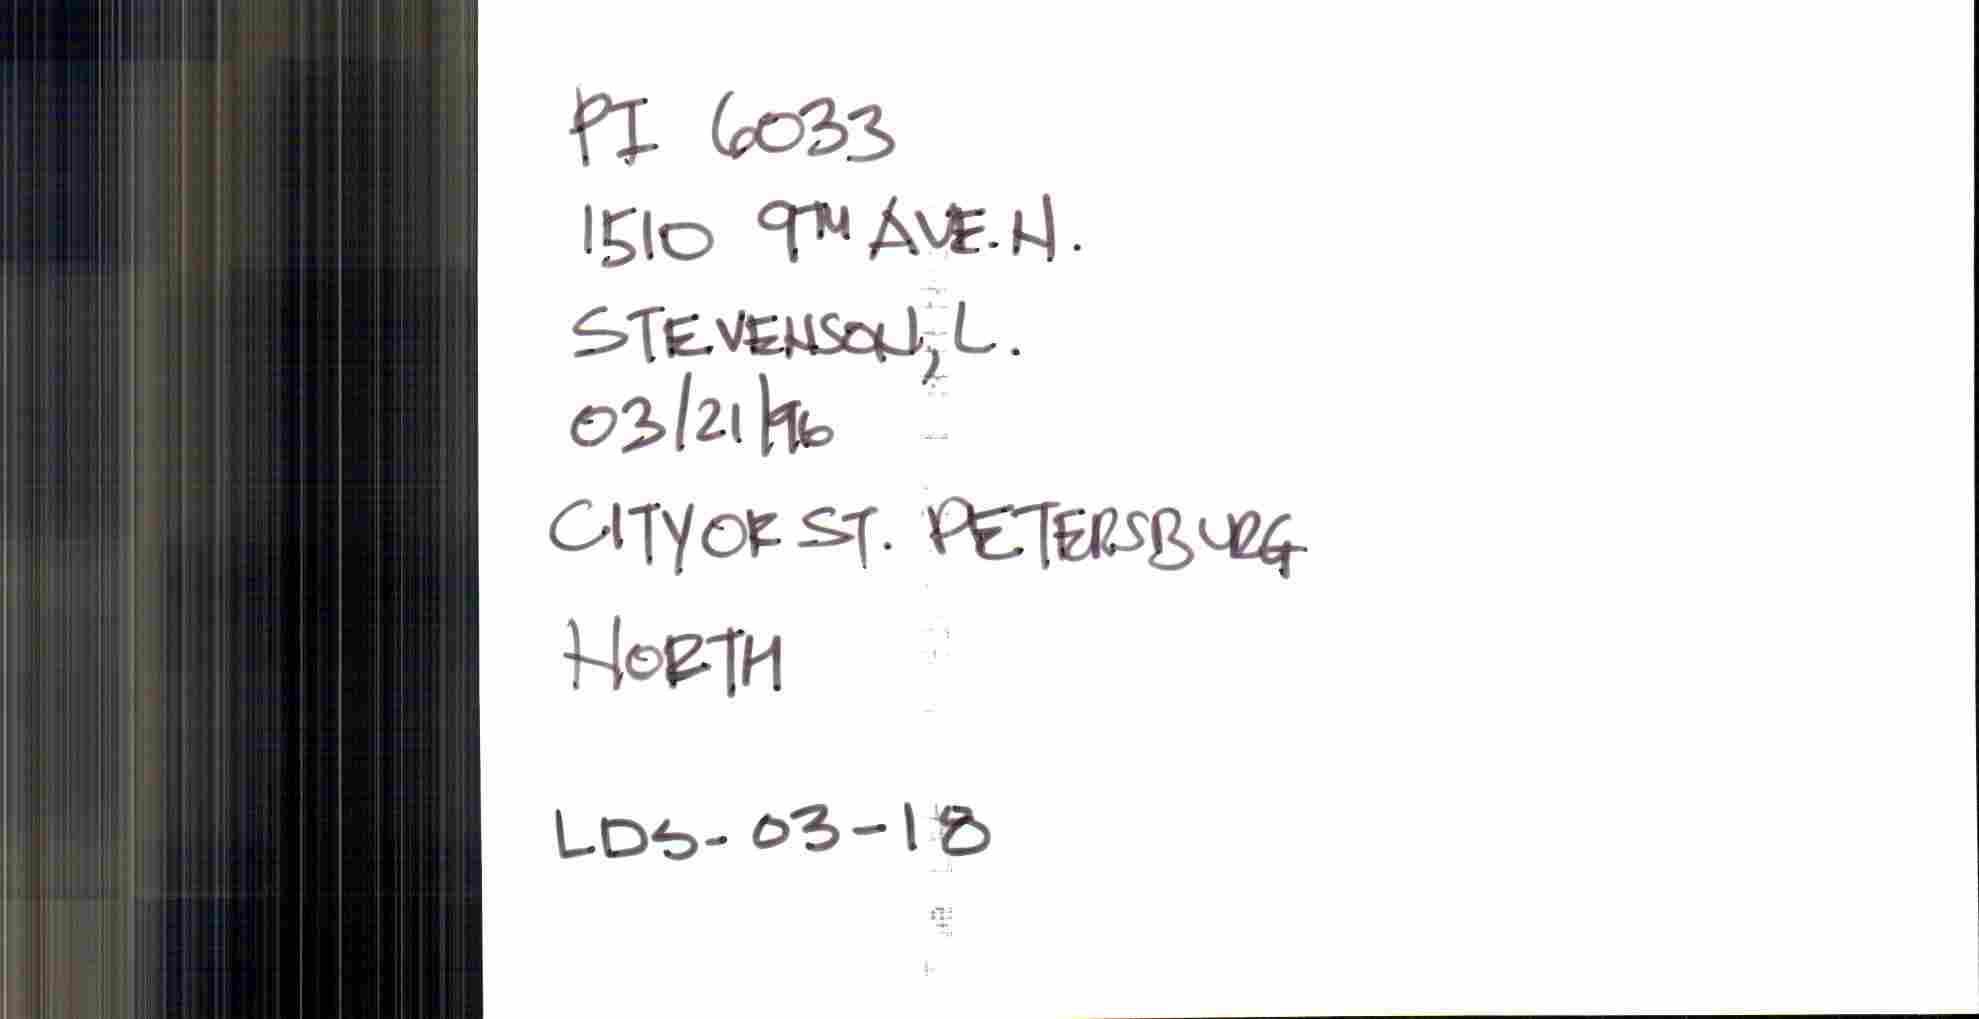 PI 6033
1510 9TH AVE. N.
STEVENSON, L.
03/21/96
CITY OF ST. PETERSBURG
NORTH
LDS-03-18